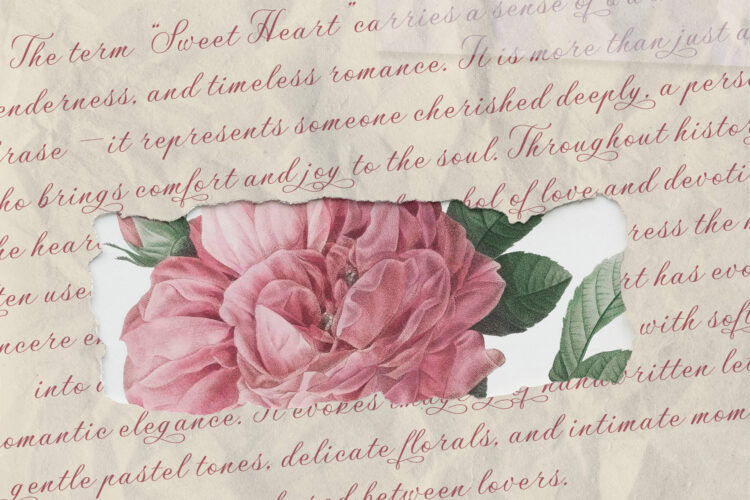 The term "Sweet Heart" carries a sense of a
enderness, and timeless romance. It is more than just a
rase —it represents someone cherished deeply, a pers
ho brings comfort and joy to the soul. Throughout histor
he hear bol of love and devoti
ten use ress the m
ncere e rt has evo
into with soft
omantic elegance. It evokes imagery of handwritten le
gentle pastel tones, delicate florals, and intimate mom
ed between lovers.